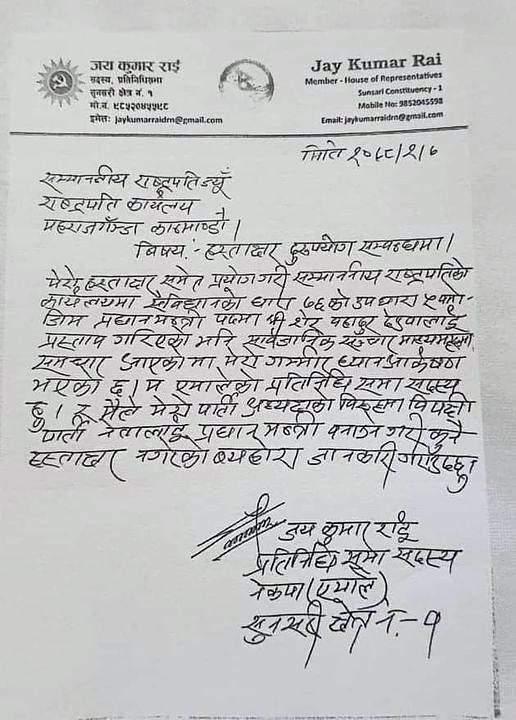 जय कुमार राई
सदस्य, प्रतिनिधिसभा
सुनसरी क्षेत्र नं. १
मो.नं. ९८५२०४५५९८
इमेल: jaykumarraidrn@gmail.com
Jay Kumar Rai
Member - House of Representatives
Sunsari Constituency - 1
Mobile No: 9852045598
Email: jaykumarraidrn@gmail.com
मिति २०७८/२/७
सम्माननीय राष्ट्रपतिज्यूँ
राष्ट्रपति कार्यलय
महाराजगन्ज काठमाण्डौ।
विषय:- हस्ताक्षर दुरुपयोग सम्बन्धमा।
मेरो हस्ताक्षर समेत प्रयोग गरी सम्माननीय राष्ट्रपतिको
कार्यलयमा संविधानको धारा ७६ को उपधारा ५ बमो-
जिम प्रधानमन्त्री पदमा श्री शेर बहादुर देउवालाई
प्रस्ताव गरिएको भनि सार्वजनिक सञ्चार माध्यमहरूमा
समाचार आएको मा मेरो गम्भीर ध्यानआकर्षण
भएको छ। म एमालेको प्रतिनिधि सभा सदस्य
हु। र मैले मेरो पार्टी अध्यक्षको विरूद्धमा विपक्षी
पार्टी नेतालाई प्रधानमन्त्री बनाउन गरी कुनै
हस्ताक्षर नगरेको ब्यहोरा जानकारी गराउँदछु।
जय कुमार राई
प्रतिनिधि सभा सदस्य
नेकपा (एमाले)
सुनसरी क्षेत्र नं.-१